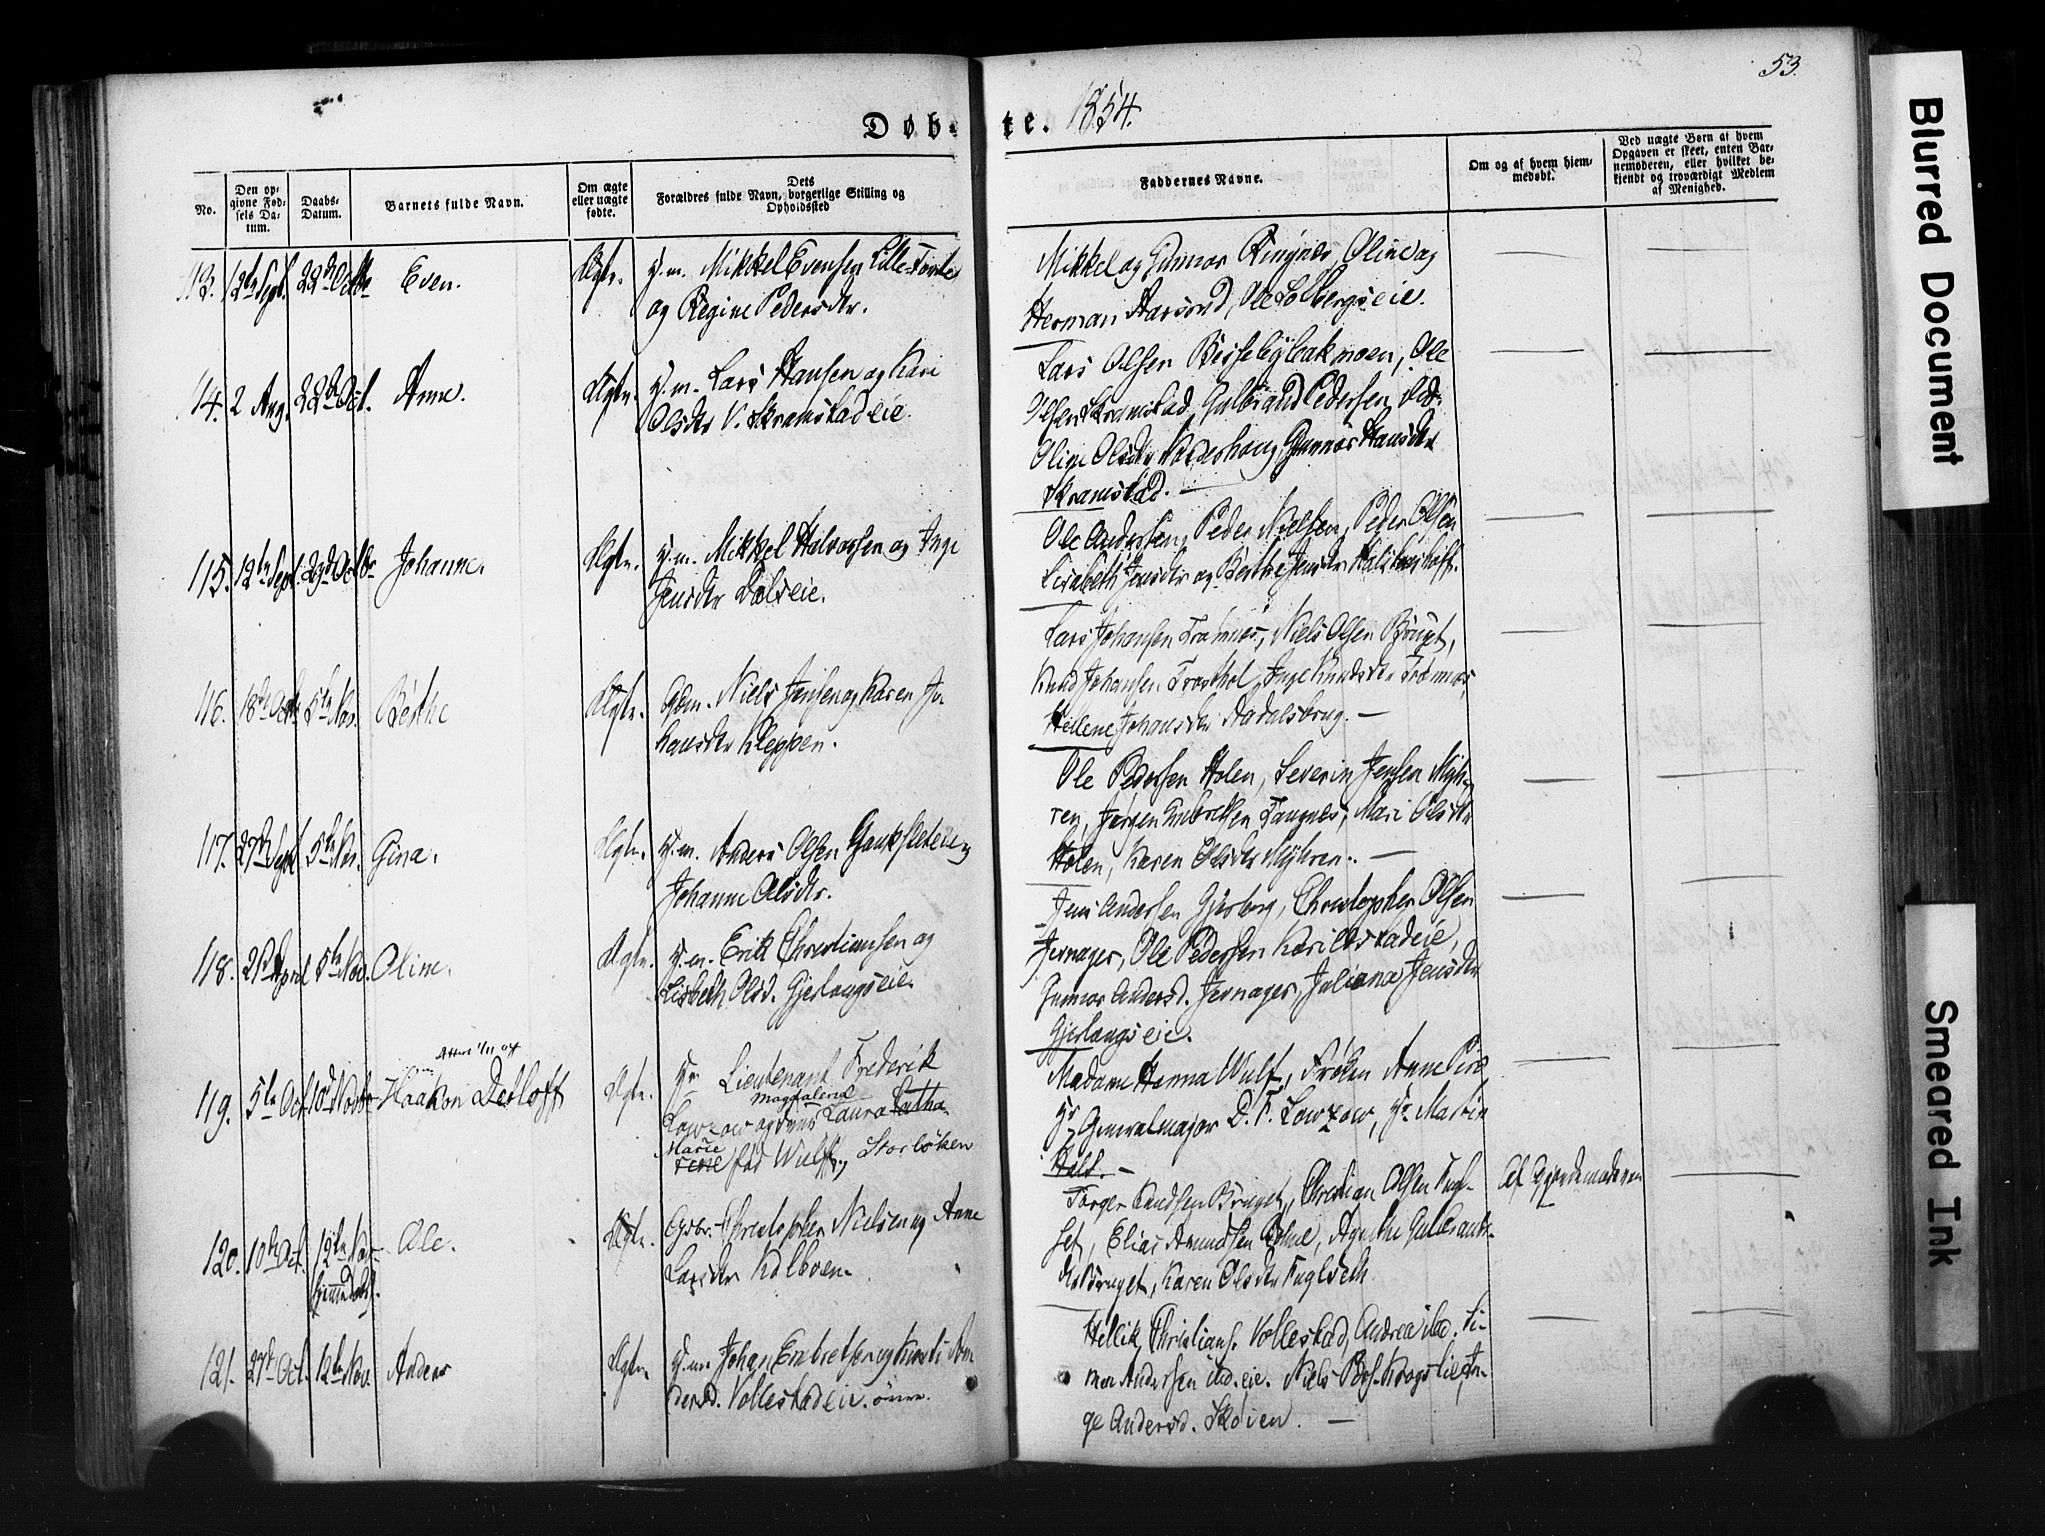 53.
Døb- te. 1854.
No.
Den op-
givne Fød-
sels Da-
tum.
Daabs-
Datum.
Barnets fulde Navn.
Om ægte
eller uægte
fødte.
Dets
Forældres fulde Navn, borgerlige Stilling og
Opholdsted
Faddernes Navne.
Om og af hvem hjem-
medøbt.
Ved uægte Børn af hvem
Opgaven er skeet, enten Bar-
nemoderen, eller hvilket be-
kjendt og troværdigt Medlem
af Menighed.
113. 12te Sept. 22de Octbr Even. Ægte. H.m. Mikkel Evensen Lille
og Regine Pedersdtr.
Mikkel og Gunnor Ringnes, Oline og
Herman Aarsrud, Ole Solbergseie.
114. 2 Aug. 22de Oct. Anne. Ægte. H.m. Lars Hansen og Kari
Olsdtr V. Skramstadeie.
Lars Olsen moen, Ole
Olsen Skramstad, Gulbrand Pedersen ibd.
Oline Olsdtr Nordeshaug, Gunnor Hansdtr
Skramstad.
115. 12te Sept. 29de Octbr Johanne. Ægte. H.m. Mikkel Halvorsen og Inge
Jensdtr Dælseie.
Ole Andersen, Peder Nielsen, Peder Olsen
Lisabeth Jensdtr og Berthe Jensdtr
116. 18de Octb 5te Nov. Berthe Ægte. Gdm. Niels Jensen og Karen Jo
hansdtr Kleppen.
Lars Johansen Tramnes, Niels Olsen Bruget,
Knud Johansen Trosthol, Inge Knudsdtr Tramnæs
Hellene Johansdtr Aadalsbrug. —
117. 27de Sept 5te Nov. Gina. Ægte. H.m. Anders Olsen Gauksteteie og
Johanne Olsdtr.
Ole Pedersen Holen, Severin Jensen Myh-
ren, Jørgen Embretsen Tangnes, Mari Olsdtr
Holen, Karen Olsdtr Myhren. —
118. 21de April 5te Nov. Oline. Ægte. H.m. Erik Christiansen og
Lisbeth Olsd. Gjerlaugseie.
Jens Andersen Gjerborg, Christopher Olsen
Jernager, Ole Pedersen Karilstadeie,
Gunnor Andersd. Jernager, Juliane Jensdtr
Gjerlaugseie.
119. 5te Oct. 10d Novbr Haakon Detloff Ægte. Hr Lieutenant Frederik
Magdalena
Lowzow og Laura Catha
Marie
rine fød Wulff, Storløken
Madame Hanna Wulf, Frøken Anne Pire
Hr Generalmajor D. F. Lowzow, Hr Martin
Hald. —
120. 10de Oct. 12te Nov
hjemmedøbt. Ole. Ægte. Gdbr. Christopher Nielsen og Anne
Larsdtr Kolboen
Torger Knudsen Bruget, Christian Olsen Fugl-
set, Elias Amundsen Bohne, Agnethe Gulbrands-
dtr Bruget, Karen Olsdtr Fuglseth
Af Gjordemoderen
121. 27de Oct. 12te Nov. Anders Ægte. H.m. Johan Embretsen og Kirsti An
dersd. Vollestadeie. øvre.
Hellik Christians. Vollestad, Andrea ibd. Si-
mon Andersen ibd. eie. Niels Krogslie, In-
ge Andersd. Skoien. —
Blurred Document
Smeared Ink